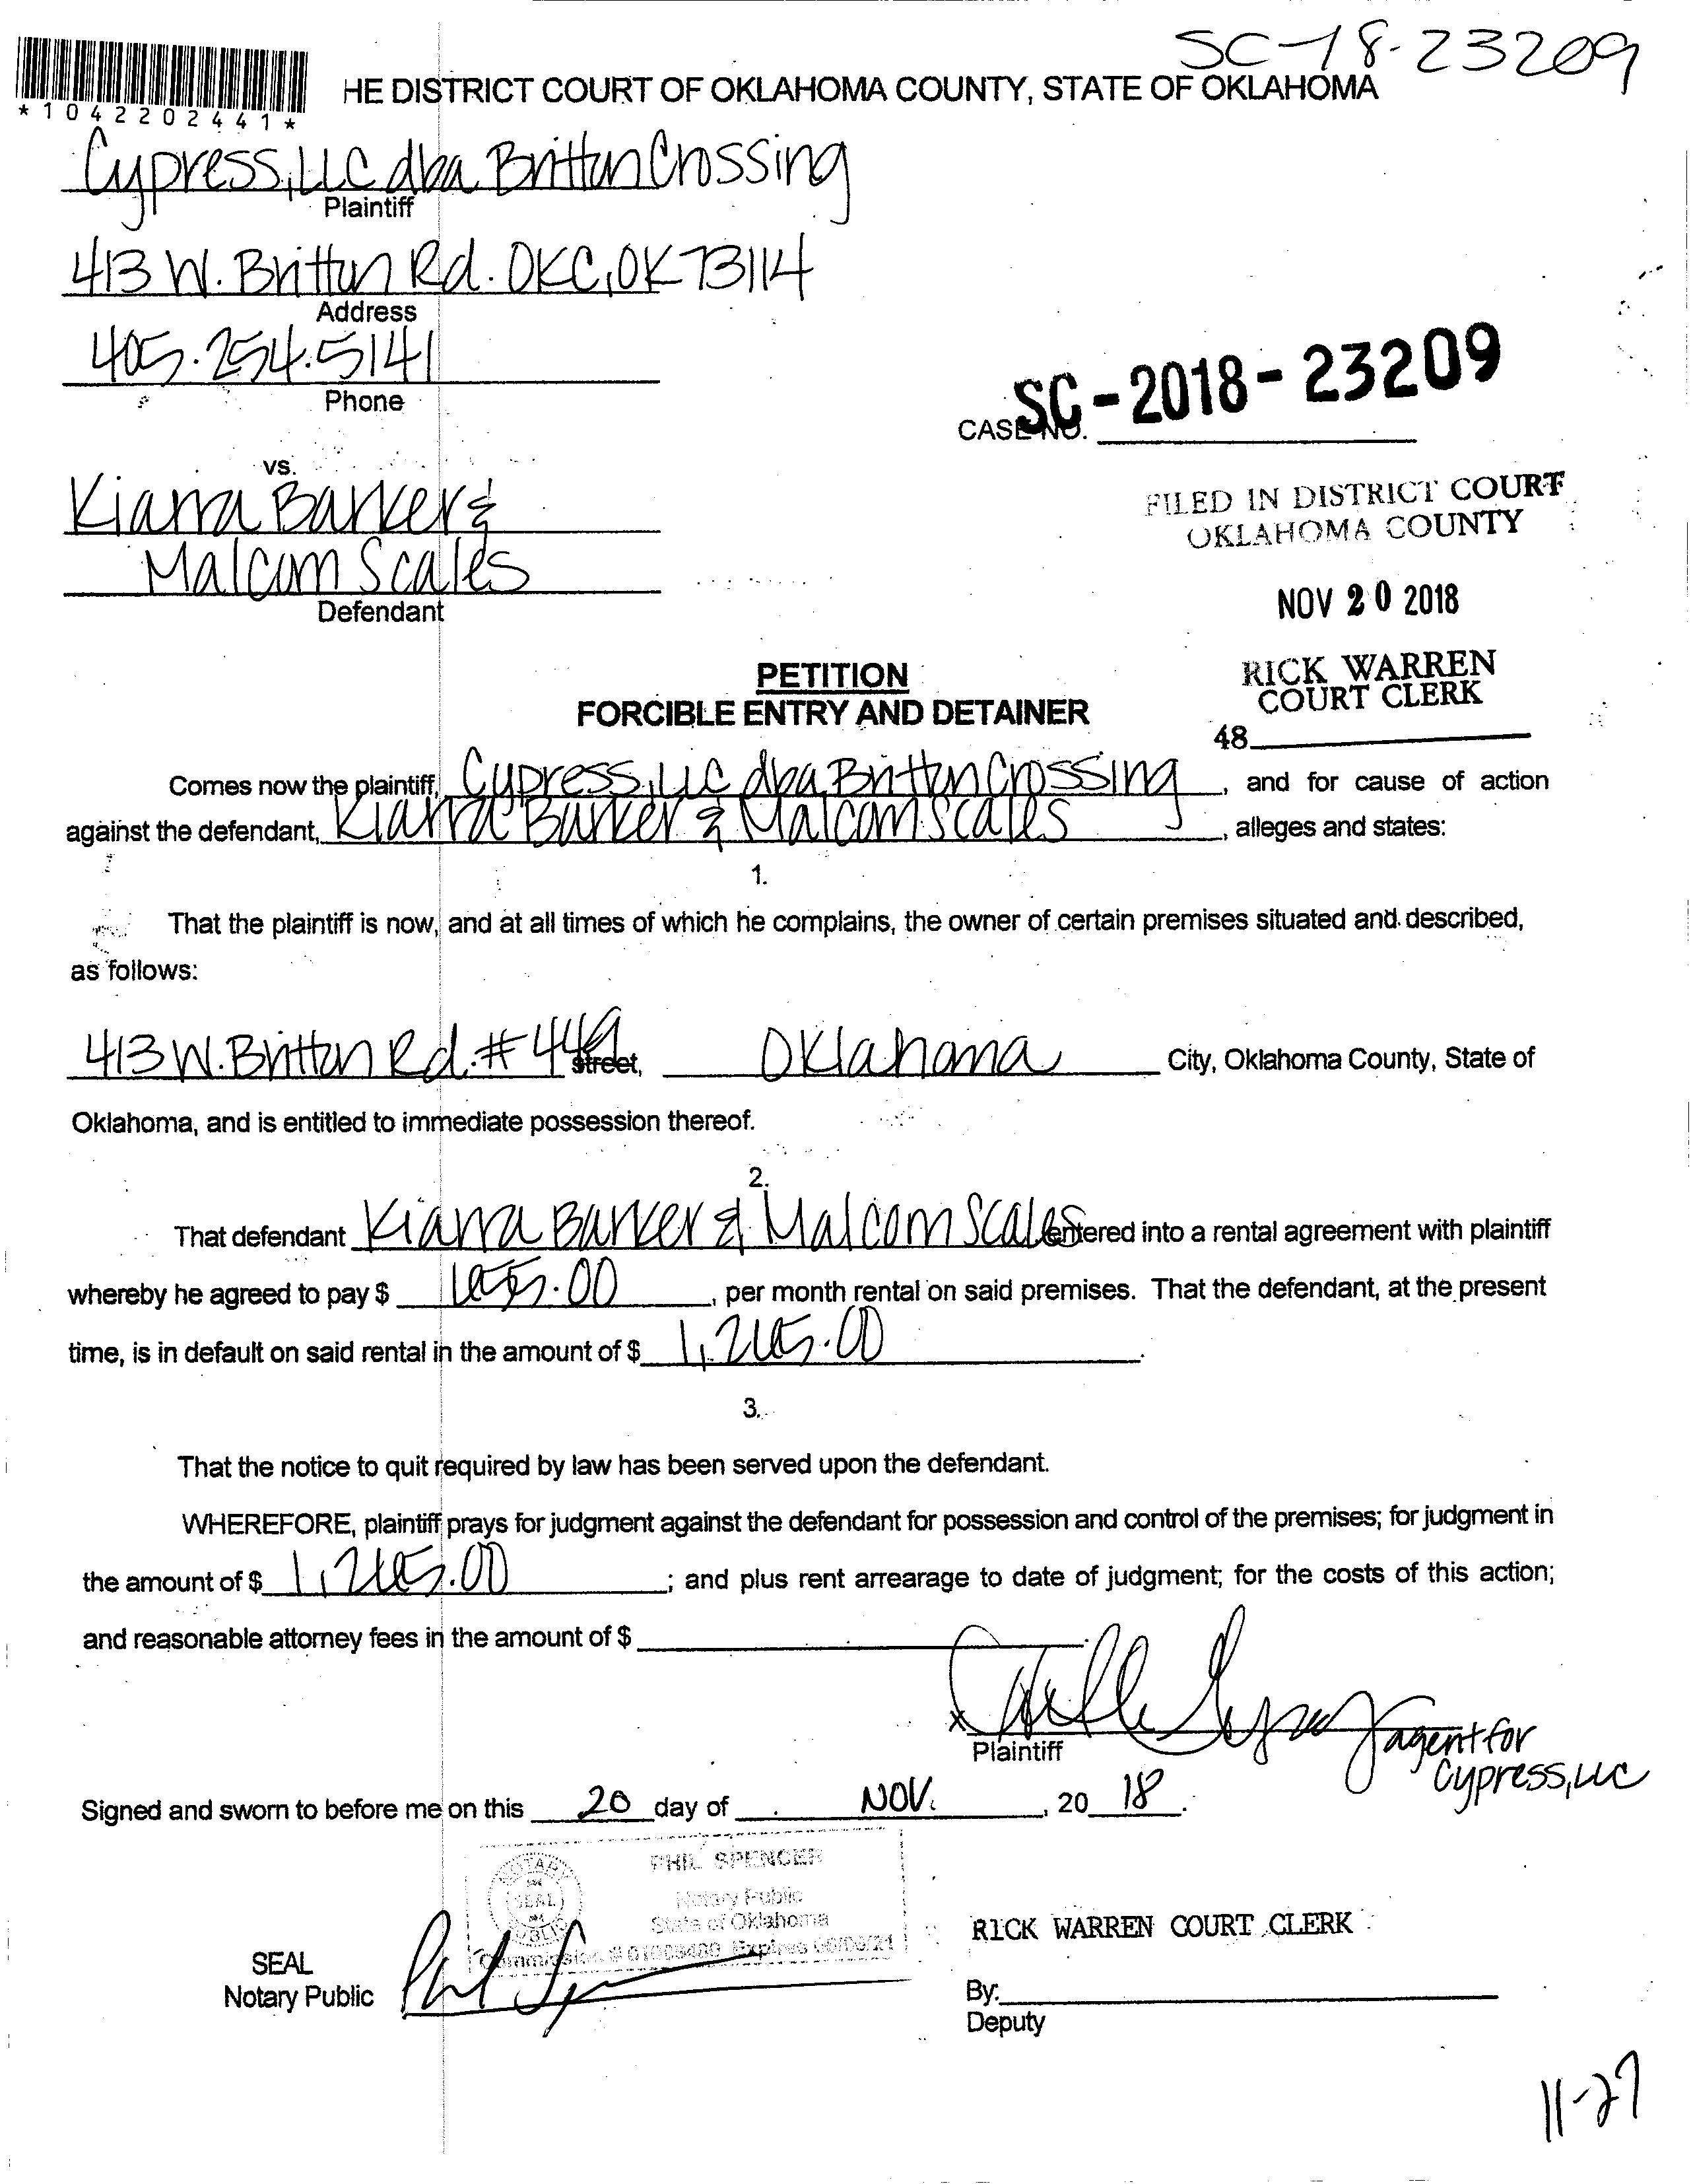 SC-18-23209
*1042202441*
HE DISTRICT COURT OF OKLAHOMA COUNTY, STATE OF OKLAHOMA
Cypress, LLC dba Britton Crossing
Plaintiff
413 W. Britton Rd. OKC, OK 73114
Address
405.254.5141
Phone
SC-2018-23209
CASE NO.
vs.
Kiarra Barker &
Malcom Scales
Defendant
FILED IN DISTRICT COURT
OKLAHOMA COUNTY
NOV 20 2018
RICK WARREN
COURT CLERK
48
PETITION
FORCIBLE ENTRY AND DETAINER
Comes now the plaintiff, Cypress, LLC dba Britton Crossing, and for cause of action
against the defendant, Kiarra Barker & Malcom Scales, alleges and states:
1.
That the plaintiff is now, and at all times of which he complains, the owner of certain premises situated and described,
as follows:
413 W. Britton Rd. #449 street, Oklahoma City, Oklahoma County, State of
Oklahoma, and is entitled to immediate possession thereof.
2.
That defendant Kiarra Barker & Malcom Scales entered into a rental agreement with plaintiff
whereby he agreed to pay $ , per month rental on said premises. That the defendant, at the present
time, is in default on said rental in the amount of $ 1,265.00.
3.
That the notice to quit required by law has been served upon the defendant.
WHEREFORE, plaintiff prays for judgment against the defendant for possession and control of the premises; for judgment in
the amount of $ 1,265.00; and plus rent arrearage to date of judgment; for the costs of this action;
and reasonable attorney fees in the amount of $
x
agent for
Cypress, LLC
Plaintiff
Signed and sworn to before me on this 20 day of NOV., 20 18.
PHIL SPENCER
NOTARY
SEAL
PUBLIC
Notary Public
State of Oklahoma
Commission # Expires
SEAL
Notary Public
RICK WARREN COURT CLERK
By:
Deputy
11-27